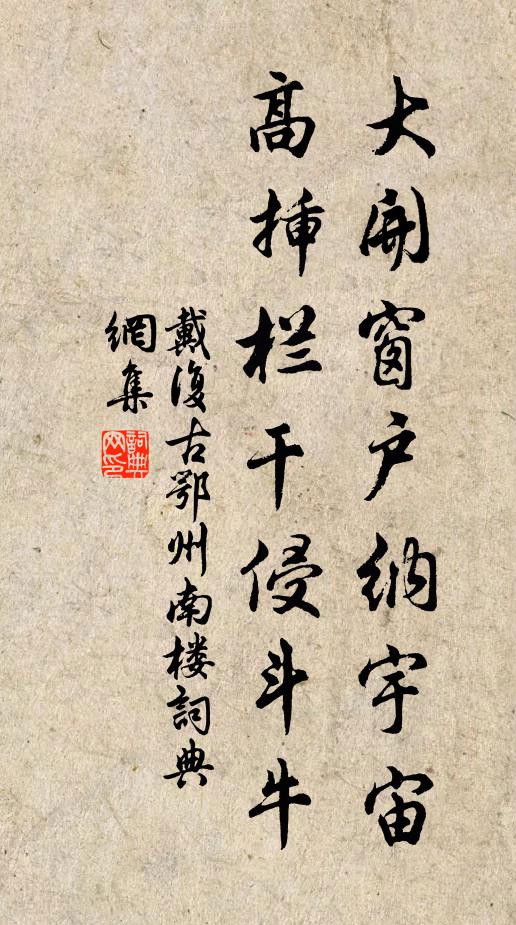 大開窗户纳宇宙
高挿栏干侵斗牛
戴復古鄂州南楼詞典
網集
詞典網印